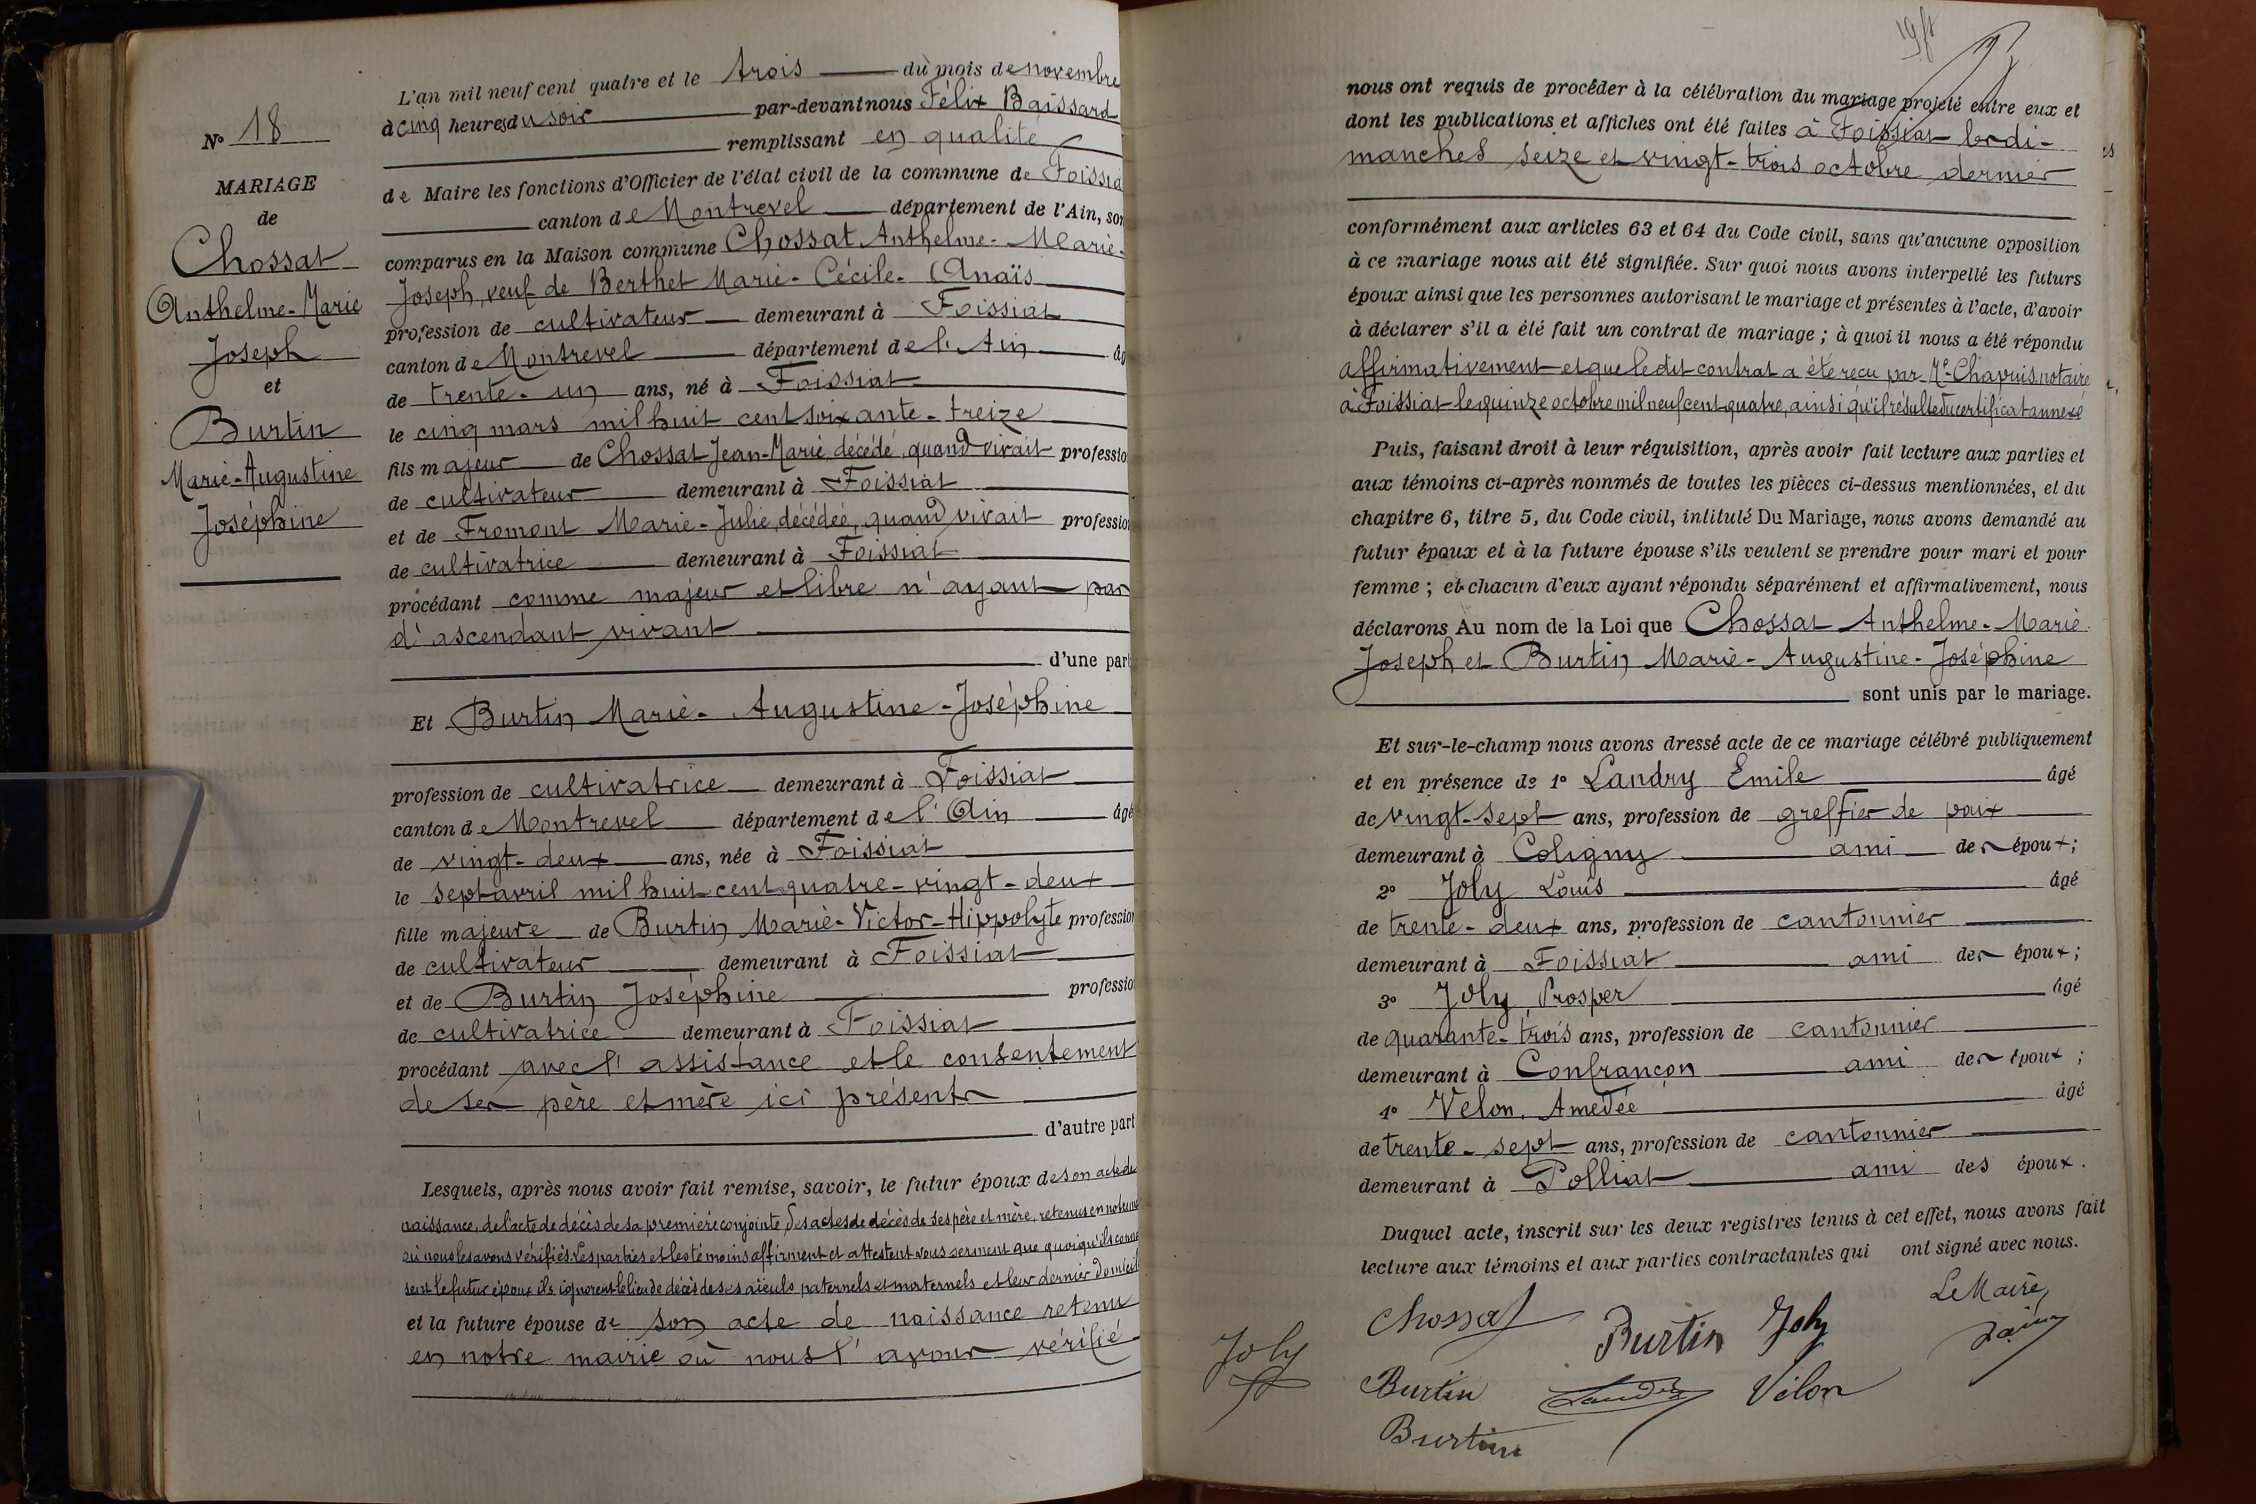 N° 18
MARIAGE
de
Chossat
Anthelme-Marie
Joseph
et
Burtin
Marie-Augustine
Joséphine
L'an mil neuf cent quatre et le trois du mois de novembre
à cinq heures du soir par-devant nous Félix Baissard
remplissant en qualité
de Maire les fonctions d'Officier de l'état civil de la commune de Foissia
canton de Montrevel département de l'Ain, son
comparus en la Maison commune Chossat Anthelme-Marie-
Joseph, veuf de Berthet Marie-Cécile-Anaïs
profession de cultivateur demeurant à Foissiat
canton de Montrevel département de l'Ain âg
de trente-un ans, né à Foissiat
le cinq mars mil huit cent soixante-treize
fils majeur de Chossat Jean-Marie, décédé, quand vivait professio
de cultivateur demeurant à Foissiat
et de Fromont Marie-Julie, décédée, quand vivait profession
de cultivatrice demeurant à Foissiat
procédant comme majeur et libre n'ayant pas
d'ascendant vivant
d'une part
Et Burtin Marie-Augustine-Joséphine
profession de cultivatrice demeurant à Foissiat
canton de Montrevel département de l'Ain âgé
de vingt-deux ans, née à Foissiat
le sept avril mil huit cent quatre-vingt-deux
fille majeure de Burtin Marie-Victor-Hippolyte profession
de cultivateur demeurant à Foissiat
et de Burtin Joséphine professio
de cultivatrice demeurant à Foissiat
procédant avec l'assistance et le consentement
de ses père et mère ici présents
d'autre part
Lesquels, après nous avoir fait remise, savoir, le futur époux de son acte de
naissance, de l'acte de décès de sa première conjointe, des actes de décès de ses père et mère, retenus en notre
où nous les avons vérifiés. Les parties et les témoins affirment et attestent sous serment que quoiqu'ils connais
sent le futur époux ils ignorent le lieu de décès de ses aïeuls paternels et maternels et leur dernier domicile
et la future épouse de son acte de naissance retenu
en notre mairie où nous l'avons vérifié
nous ont requis de procéder à la célébration du mariage projeté entre eux et
dont les publications et affiches ont été faites à Foissiat les di-
manches seize et vingt-trois octobre dernier
conformément aux articles 63 et 64 du Code civil, sans qu'aucune opposition
à ce mariage nous ait été signifiée. Sur quoi nous avons interpellé les futurs
époux ainsi que les personnes autorisant le mariage et présentes à l'acte, d'avoir
à déclarer s'il a été fait un contrat de mariage ; à quoi il nous a été répondu
affirmativement et que ledit contrat a été reçu par Me Chapuis notaire
à Foissiat le quinze octobre mil neuf cent quatre, ainsi qu'il résulte du certificat annexé
Puis, faisant droit à leur réquisition, après avoir fait lecture aux parties et
aux témoins ci-après nommés de toutes les pièces ci-dessus mentionnées, et du
chapitre 6, titre 5, du Code civil, intitulé Du Mariage, nous avons demandé au
futur époux et à la future épouse s'ils veulent se prendre pour mari et pour
femme ; et chacun d'eux ayant répondu séparément et affirmativement, nous
déclarons Au nom de la Loi que Chossat Anthelme-Marie-
Joseph et Burtin Marie-Augustine-Joséphine
sont unis par le mariage.
Et sur-le-champ nous avons dressé acte de ce mariage célébré publiquement
et en présence de 1° Landry Emile âgé
de vingt-sept ans, profession de greffier de paix
demeurant à Coligny ami des époux ;
2° Joly Louis âgé
de trente-deux ans, profession de cantonnier
demeurant à Foissiat ami des époux ;
3° Joly Prosper âgé
de quarante-trois ans, profession de cantonnier
demeurant à Confrançon ami des époux ;
4° Velon Amédée âgé
de trente-sept ans, profession de cantonnier
demeurant à Polliat ami des époux.
Duquel acte, inscrit sur les deux registres tenus à cet effet, nous avons fait
lecture aux témoins et aux parties contractantes qui ont signé avec nous.
Le Maire,
Chossat
Burtin Joly
Joly
Burtin Landry Vélon
Burtin